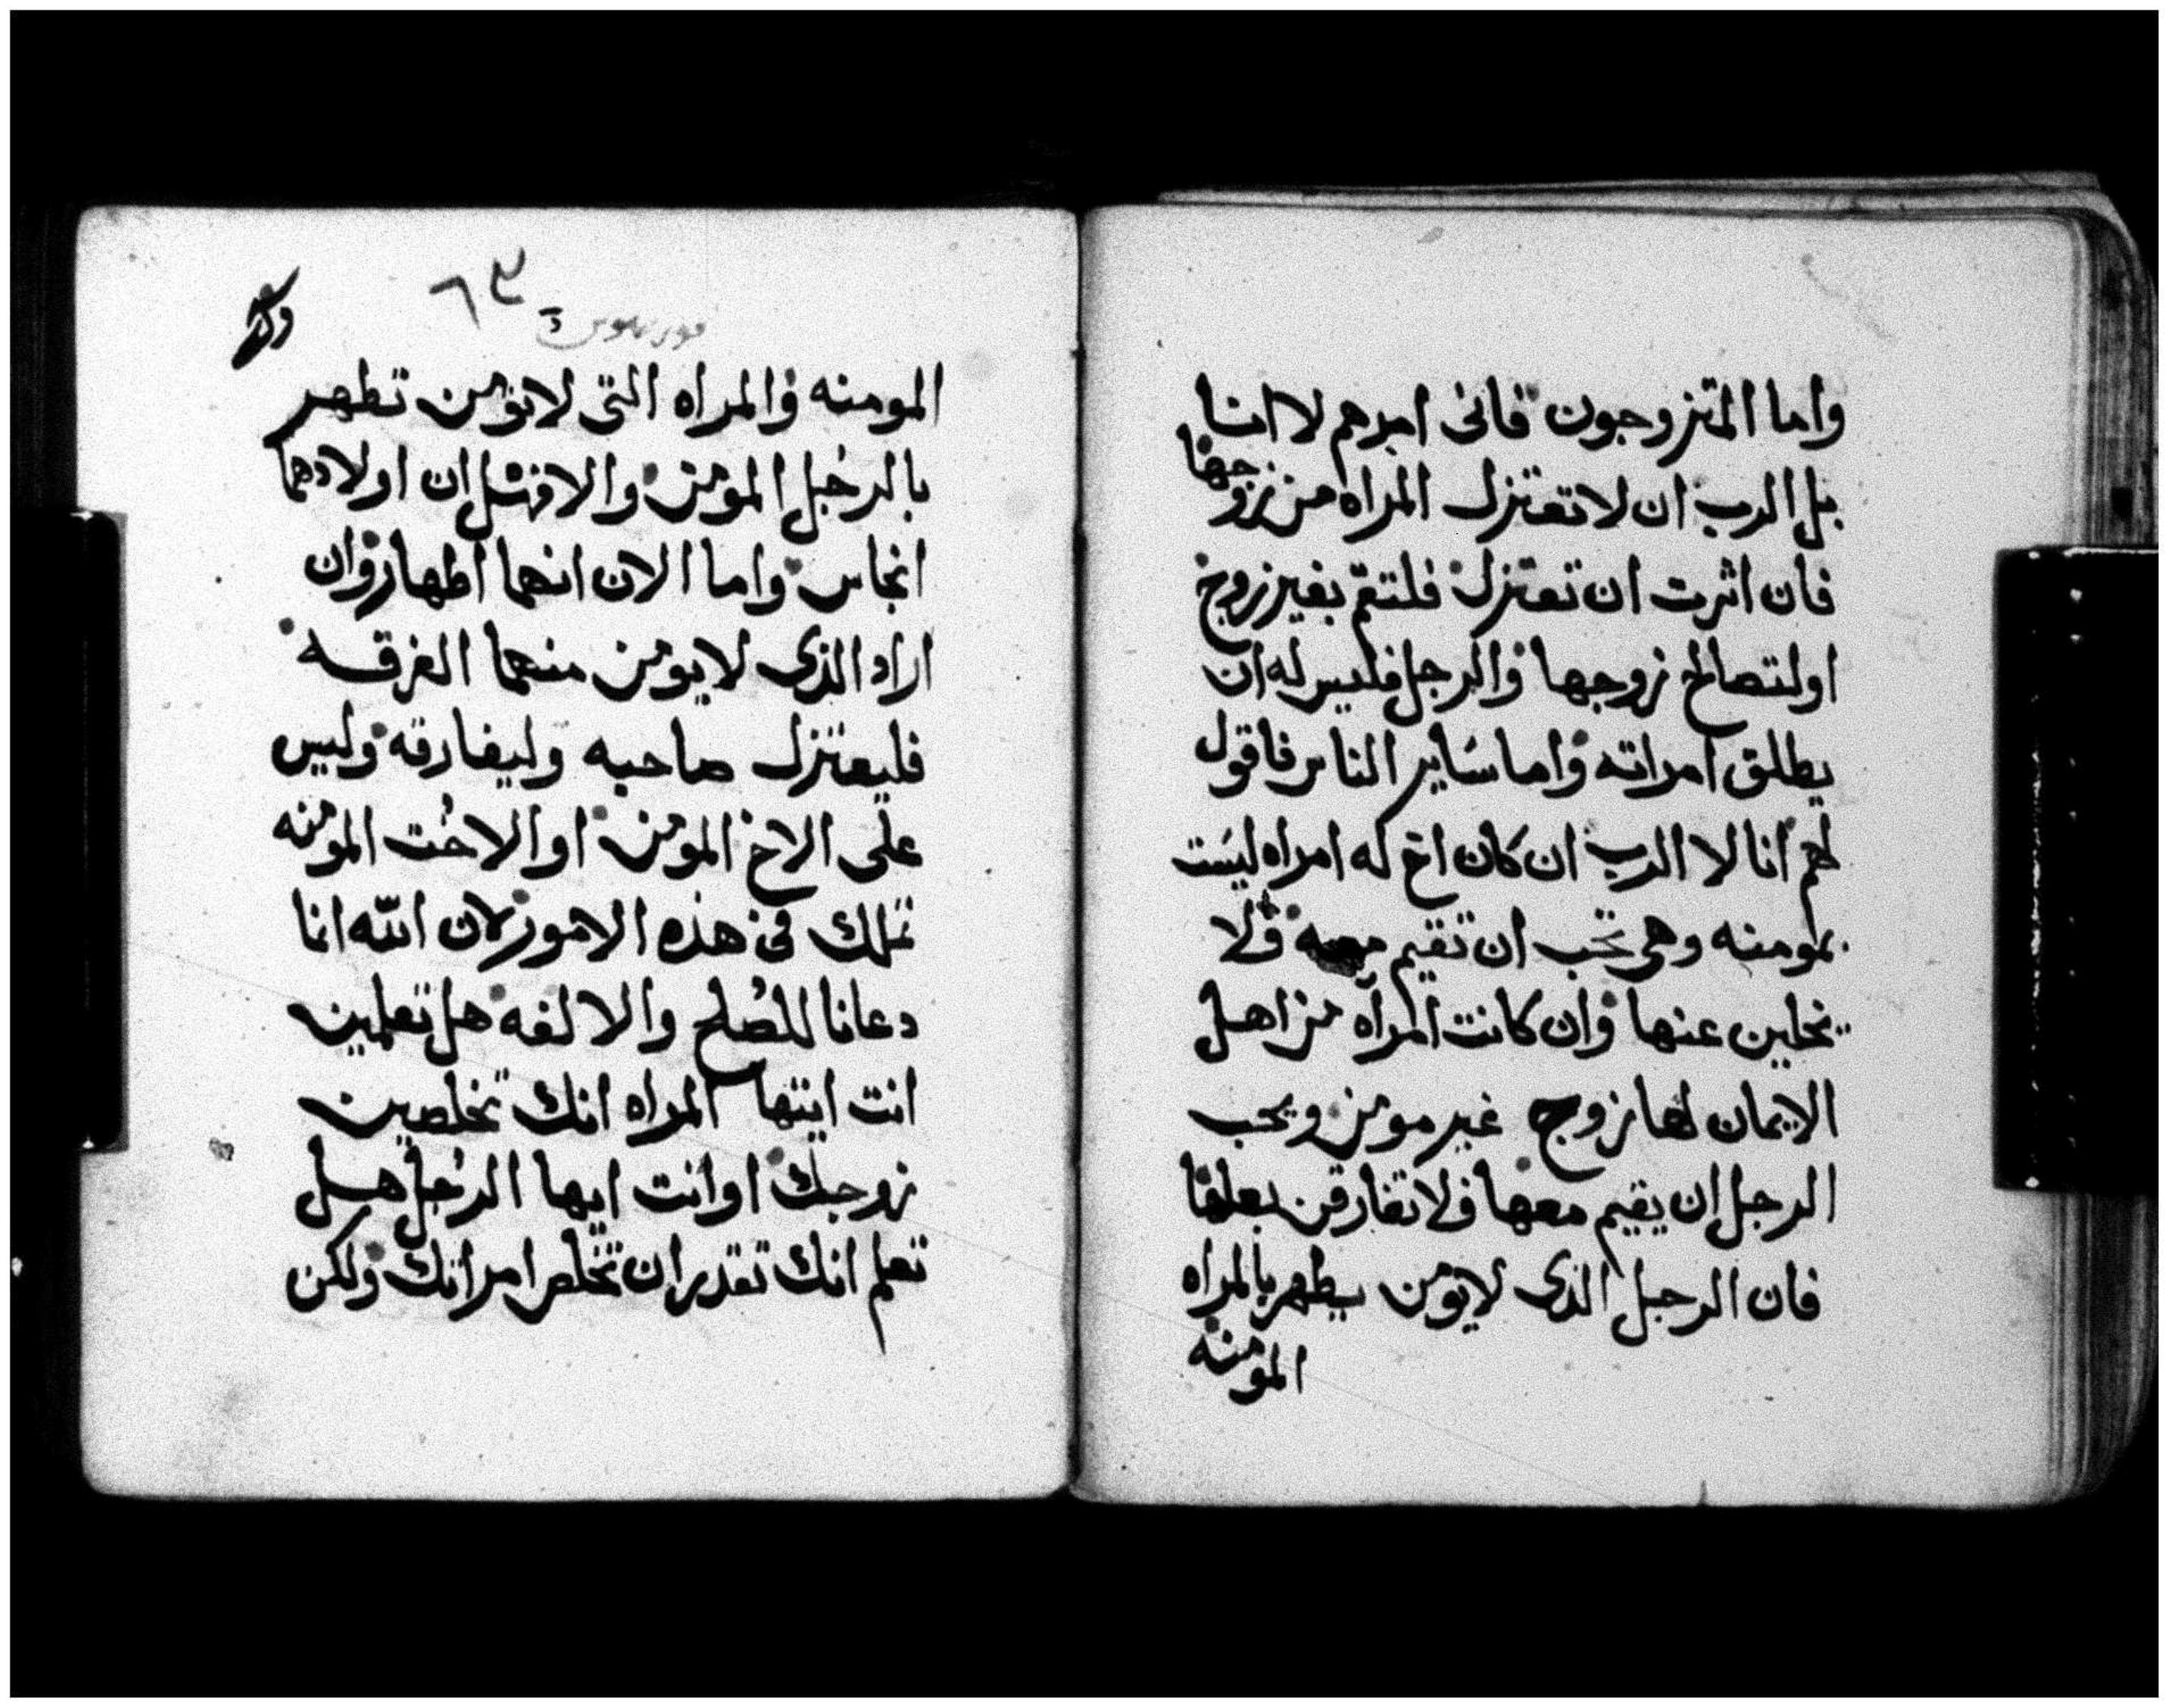 واما المتزوجون فانى امرهم لا انا
بل الرب ان لا تعتزل المراه من زوجها
فان اثرت ان تعتزل فلتقم بغير زوج
او لتصالح زوجها والرجل فليس له ان
يطلق امراته واما ساير الناس فاقول
لهم انا لا الرب ان كان اخ له امراه ليست
بمومنه وهى تحب ان تقيم معه فلا
يخلين عنها وان كانت المرآه من اهل
الايمان لها زوج غير مومن ويحب
الرجل ان يقيم معها فلا تفارقن بعلها
فان الرجل الذى لايومن يطهر بالمراه
المومنه
٦٣
المومنه والمراه التى لاتومن تطهر
بالرجل المومن والا فشل ان اولادهما
انجاس واما الان انهما اطهار وان
اراد الذى لايومن منهما الفرقه
فليعتزل صاحبه وليفارقه وليس
على الاخ المومن او الاخت المومنه
تملك فى هذه الامور لان الله انما
دعانا للصلح والالفه هل تعلمين
انت ايتها المراه انك تخلصين
زوجك او انت ايها الرجل هل
تعلم انك تقدر ان تخلص امراتك ولكن